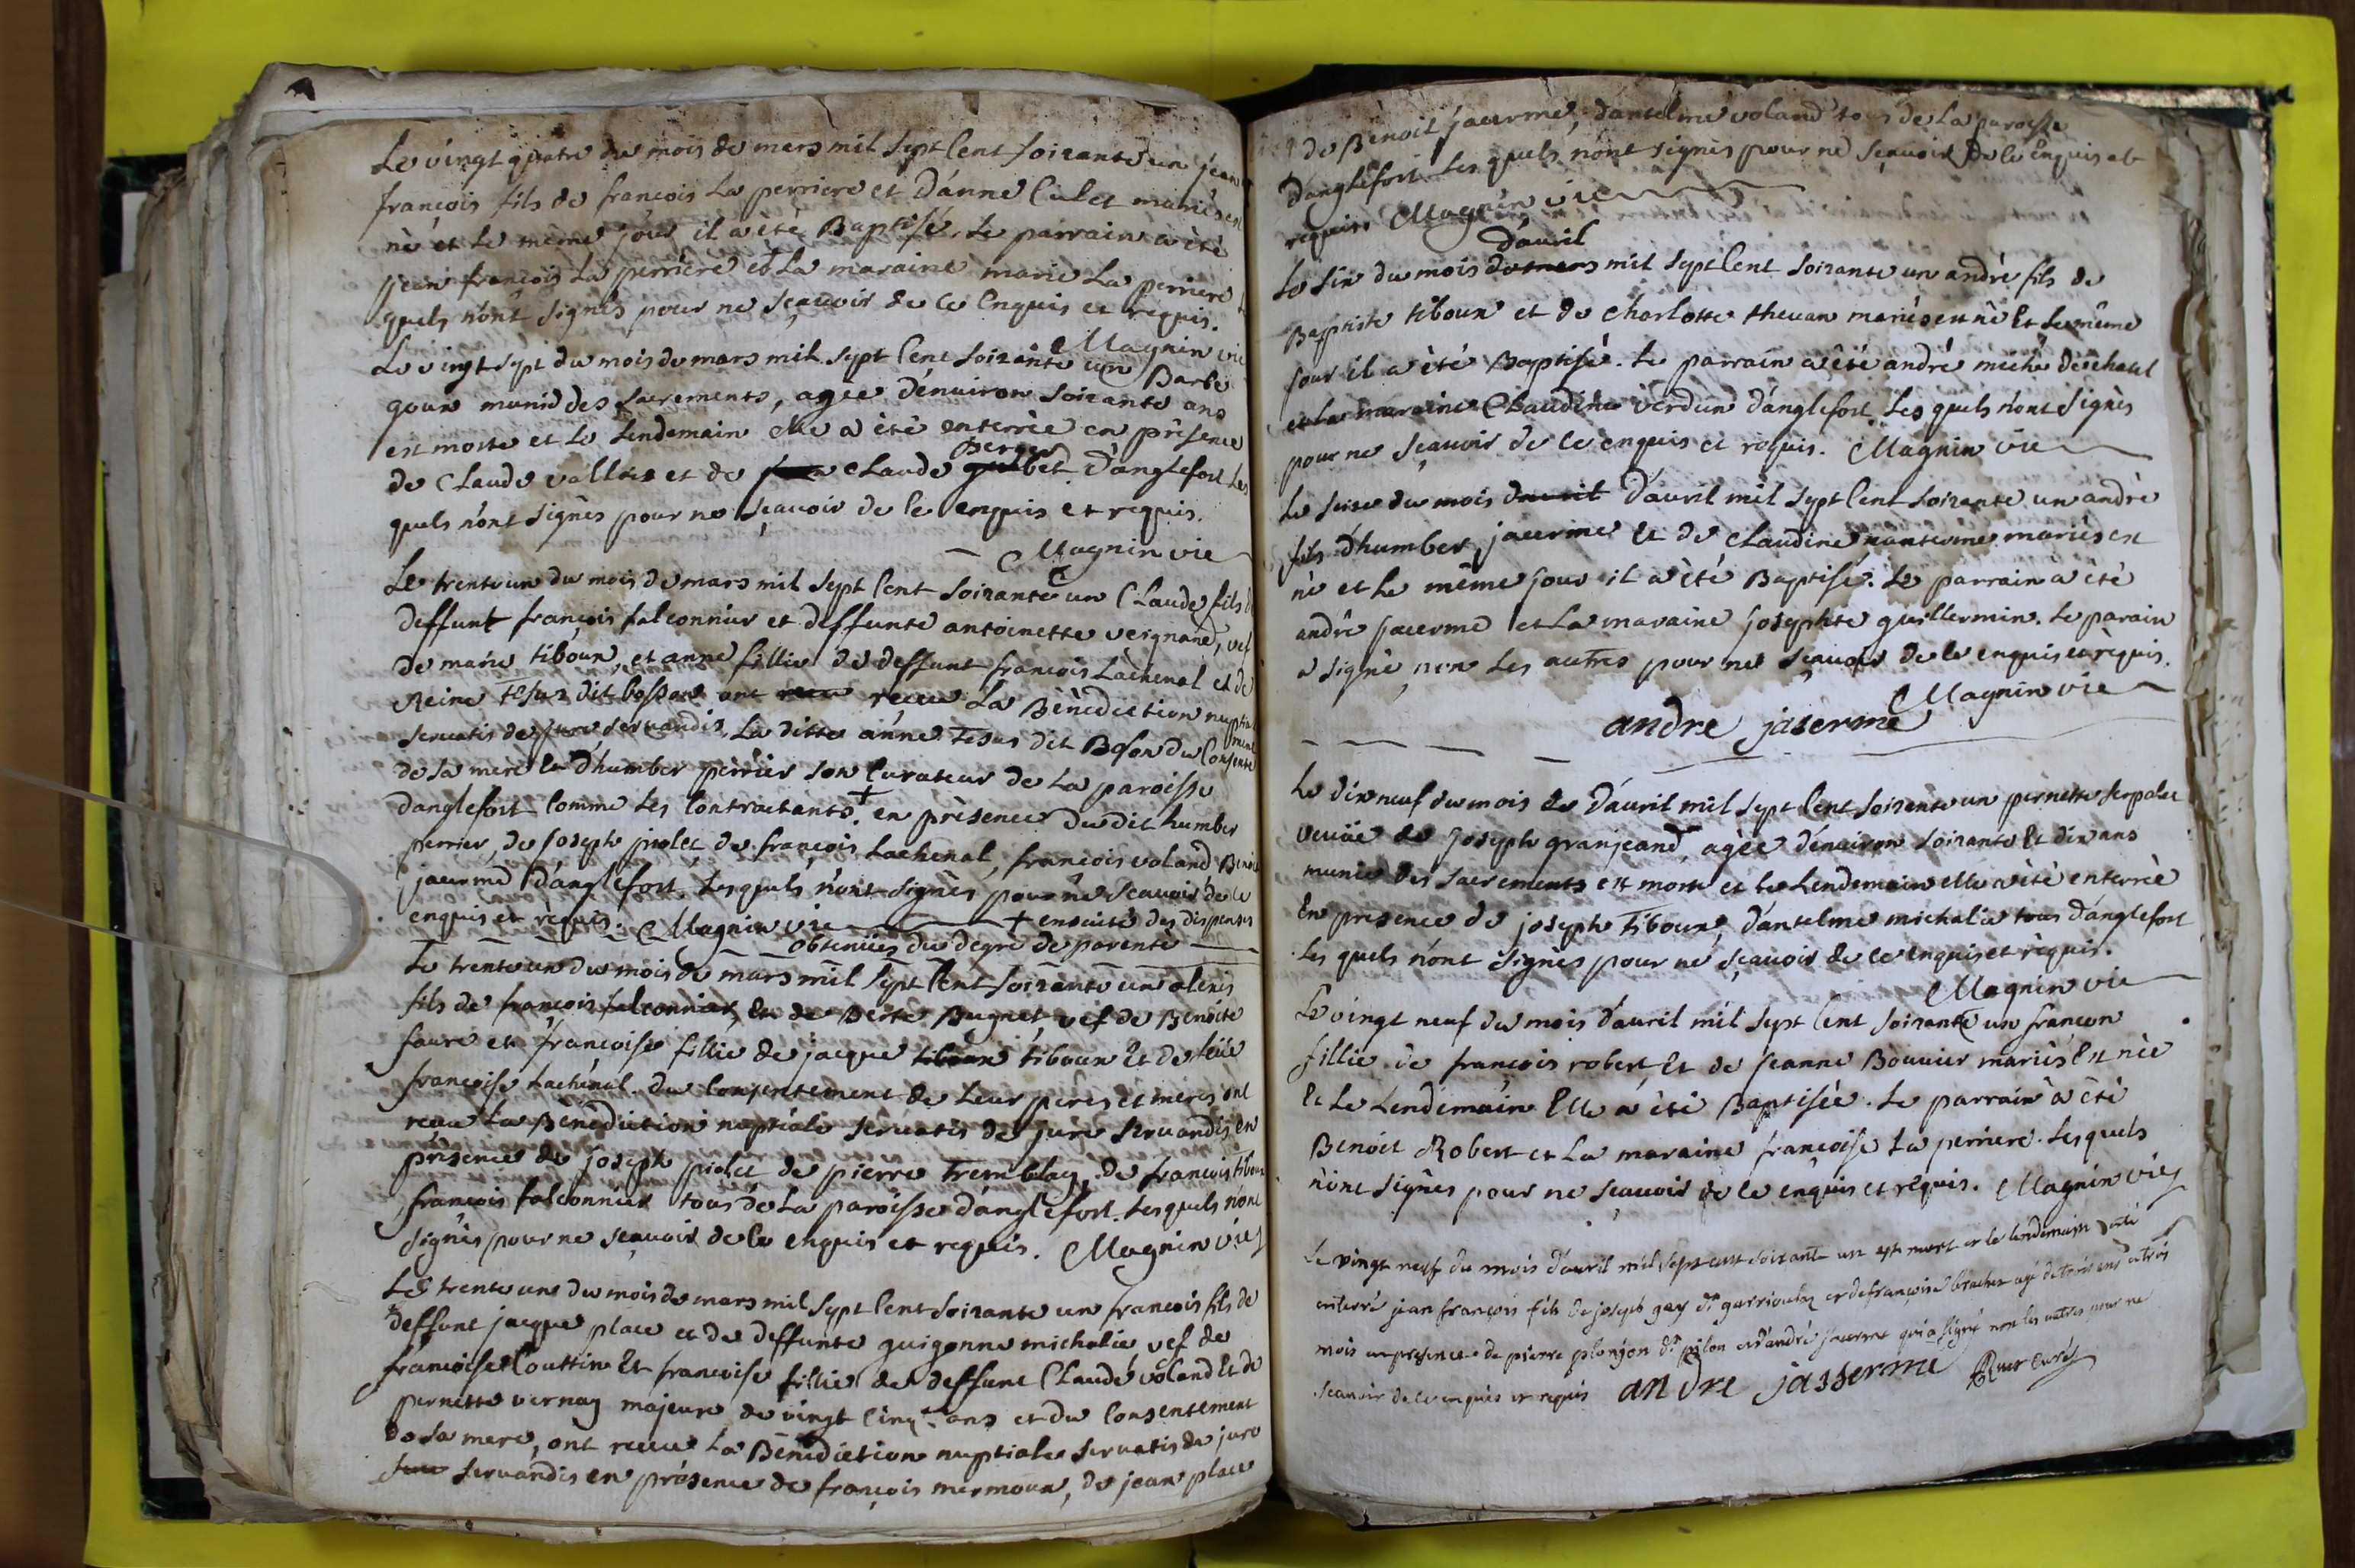 Le vingt quatre du mois de mars mil sept Cent soixante un jean
françois fils de françois La perriere et d'anne Culet mariés est
né et Le même jour il a été Baptisé. Le parrain a été
jean françois La perriere et La maraine marie La perriere
quels n'ont signés pour ne sçavoir de ce Enquis et requis.
Magnin vic
Le vingt sept du mois de mars mil sept Cent soixante un Barbe
goux munid des sacrements, agée d'environ soixante ans
est morte et Le Lendemain elle a été enterrée en présence
de Claude vallier et de Claude Berger d'anglefort Les
quels n'ont signés pour ne sçavoir de ce enquis et requis.
Magnin vic
Le trente un du mois de mars mil sept Cent soixante un Claude fils
deffunt françois falconnier et deffunte antoinette veignand, vef
de marie tiboux et anne fillie de deffunt françois Lachenal et de
Reine tesus dit bosson ont receu La Bénédiction nuptiale
servatis de jure servandis, La ditte anne tesus dit Boson du Consente
ment
de sa mere et d'humber perrier son Curateur de La paroisse
d'anglefort Comme Les Contractants + en présence du dit humber
perrier, de joseph piolet de françois Lachenal, françois voland Benoit
jacerme d'anglefort. Lesquels n'ont signés pour ne sçavoir de ce
enquis et requis. Magnin vic + ensuite des dispenses
obtenües du degré de parenté
Le trente un du mois de mars mil sept Cent soixante un alexis
fils de françois falconnier, et de Berte Bugnet vef de Benoite
faure et françoise fillie de jacque tiboux tiboux Et de feüe
françoise Lachenal du Consentement de Leur peres et meres ont
receu La Bénédiction nuptiale servatis de jure servandis en
présence de joseph piolet de pierre Tremblay, de françois tiboux
françois falconnier tous de La paroisse d'anglefort. Lesquels n'ont
signés pour ne sçavoir de ce enquis et requis. Magnin vic
Le trente un du mois de mars mil sept Cent soixante un françois fils de
deffunt jacque place et de deffunte guigonne michalie vef de
françoise Couttin Et françoise fillie de deffunt Claude voland Et de
pernette vernay majeure de vingt Cinq ans et du Consentement
de sa mere, ont receu La Bénédiction nuptiale servatis de jure
servandis en présence de françois mermoux, de jean place
de Benoit jacerme, d'antelme voland tous de La paroisse
d'anglefort Les quels n'ont signés pour ne sçavoir de ce Enquis et
requis Magnin vic
d'avril
Le six du mois de mars mil sept Cent soixante un andré fils de
Baptiste tiboux et de Charlotte thevan mariés est né Et Le même
jour il a été Baptisé. Le parrain a été andré miche de chatel
et La maraine Claudine verdun d'anglefort. Les quels n'ont signés
pour ne sçavoir de ce enquis et requis. Magnin vic
Le seize du mois davril D'avril mil sept Cent soixante un andré
fils d'humber jacerme Et de Claudine mariés est
né et Le même jour il a été Baptisé. Le parrain a été
andré jacerme et La maraine josephte guillermin. Le parain
a signé non Les autres pour ne sçavoir de ce enquis et requis.
Magnin vic
andre jaserme
Le dix neuf du mois de D'avril mil sept Cent soixante un pernette serpolet
veuve de joseph granjeand agée d'environ soixante Et dix ans
munie des sacrements est morte et Le Lendemain elle a été enterrée
En présence de joseph Tiboux, d'antelme michalie tous d'anglefort
Les quels n'ont signés pour ne sçavoir de ce enquis et requis.
Magnin vic
Le vingt neuf du mois d'avril mil sept Cent soixante un françon
fillie de françois robert Et de jeanne Bouvier mariés Est née
Et Le Lendemain Elle a été Baptisée. Le parrain a été
Benoit Robert et La maraine françoise La perriere. Lesquels
n'ont signés pour ne sçavoir de ce enquis et requis. Magnin vic
Le vingt neuf du mois d'avril mil sept cent soixante un est mort et le lendemain a été
enterré jean françois fils de joseph gay dt et de françoise brachet agé de trois ans et trois
mois en presence de pierre plonjon dt pilon et d'andré jacerme qui a signé non les autres pour ne
scavoir de ce enquis et requis andre jasserme curé